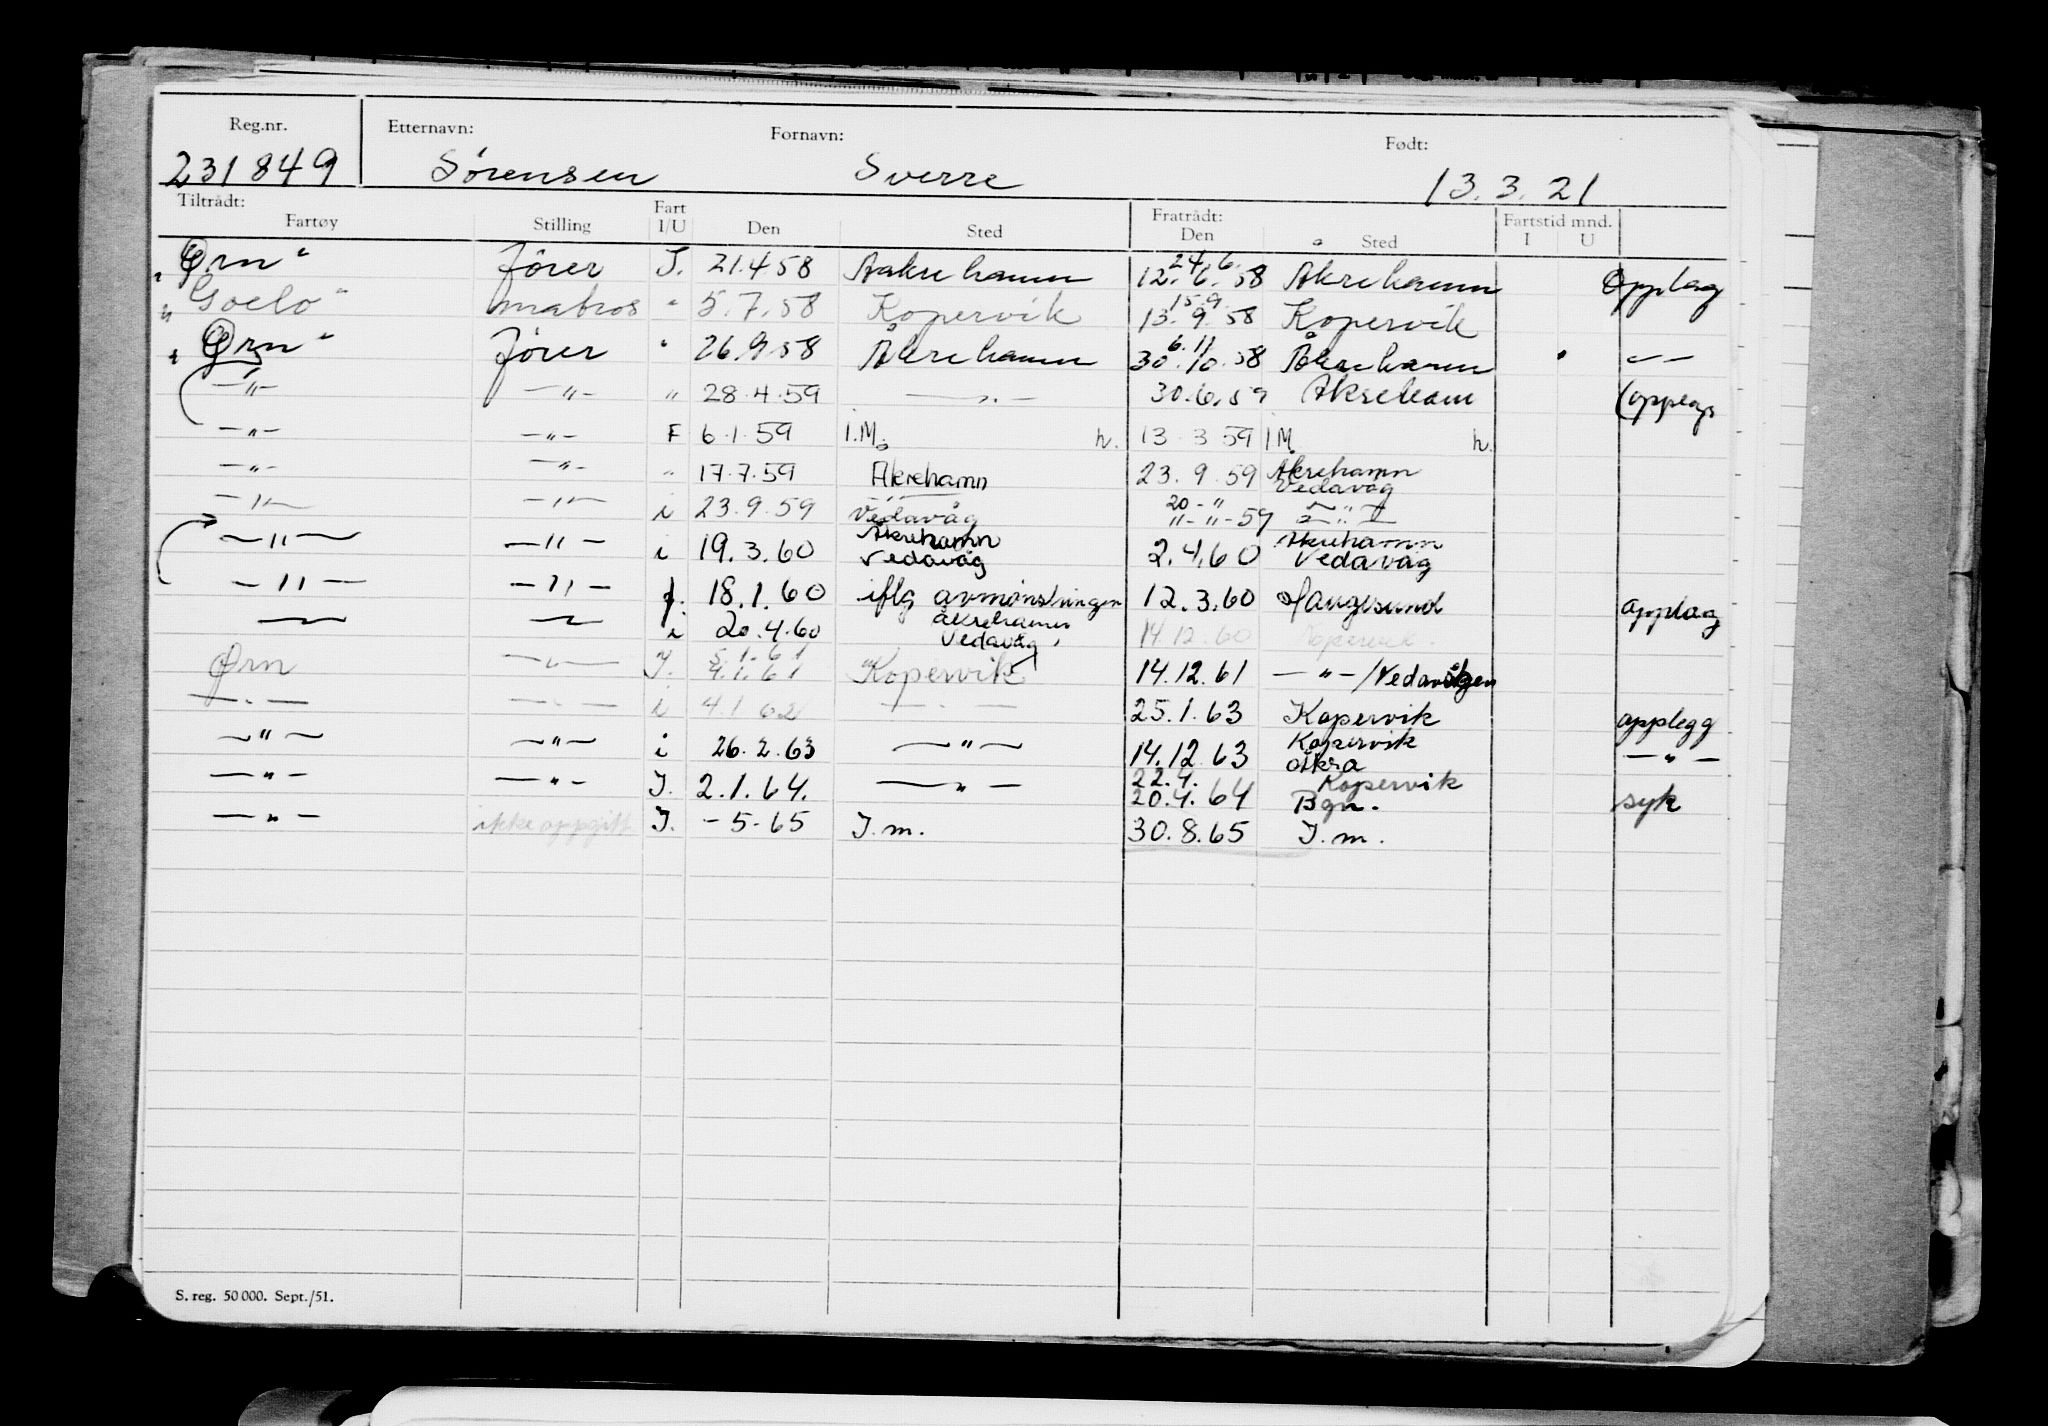 Reg.nr. Etternavn: Fornavn: Født:
231849 Sörensen Sverre 13.3.21
Tiltrådt: Fart Fratrådt: Fartstid mnd.
Fartøy Stilling I/U Den Sted Den Sted I U
24.6.
"Ørn" förer I. 21.4 58 Aakrehamn 12.6.58 Akrehamn Opplag
15.9.
"Goelo" matros " 5.7.58 Kopervik 13.9.58 Kopervik
6.11
"Ørn" förer " 26.9 58 Åkrehamn 30.10.58 Åkrehamn — —
—"— —"— " 28.4.59 —"— 30.6.59 Akreham (opplag
—"— —"— F 6.1.59 I.M. h. 13.3 59 IM h.
—"— —"— " 17.7.59 Akrehamn 23.9.59 Akrehamn
Vedavåg
—"— —"— i 23.9.59 Vedavåg 20 -"
"-"-59 —"—
—"— —"— i 19.3.60 Åkrehamn
Vedavåg 2.4.60 Akrehamn
Vedavåg
—"— —"— f. 18.1.60 iflg avmønstringen 12.3.60 Haugesund opplag
— — i 20.4.60 Åkrehamn
Vedavåg 14.12.60 Kopervik
5.1.61
Ørn —"— I. 4.1.61 Kopervik 14.12.61 —"—/Vedavågen
—"— —"— i 4.1 62 —"— 25.1.63 Kopervik opplegg
—"— —"— i 26.2.63 —"— 14.12.63 Kopervik
Åkra —"—
—"— —"— I. 2.1.64. —"— 22.4.
20.4.64 Kopervik
Bgn. syk
—"— ikke oppgitt I. -5-65 I.m. 30.8.65 I.m.
S. reg. 50 000. Sept./51.